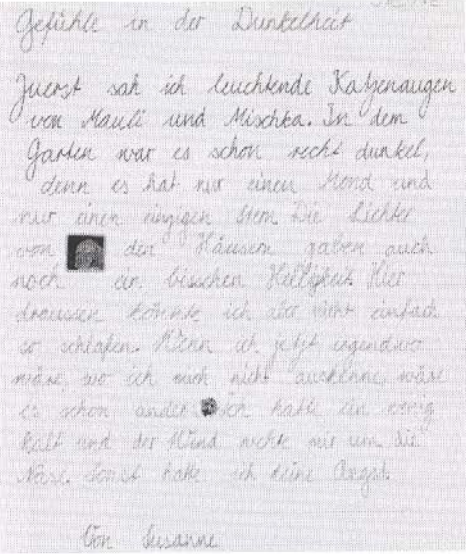 Gefühle in der Dunkelheit
Zuerst sah ich leuchtende Katzenaugen
von Mauli und Mischka. In dem
Garten war es schon recht dunkel,
denn es hat nur einen Mond und
nur einen einzigen Stern. Die Lichter
von den Häusern gaben auch
noch ein bisschen Helligkeit. Hier
draussen könnte ich aber nicht einfach
so schlafen. Wenn ich jetzt irgendwo
wäre, wo ich mich nicht auskenne, wäre
es schon anders. Ich hatte ein wenig
kalt und der Wind wehte mir um die
Nase. Sonst hatte ich keine Angst.
Von Susanne